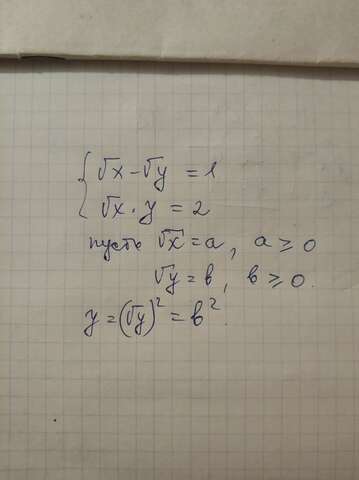 { √x - √y = 1
√x · y = 2
пусть √x = a, a ≥ 0
√y = в, в ≥ 0.
y = (√y)² = в².